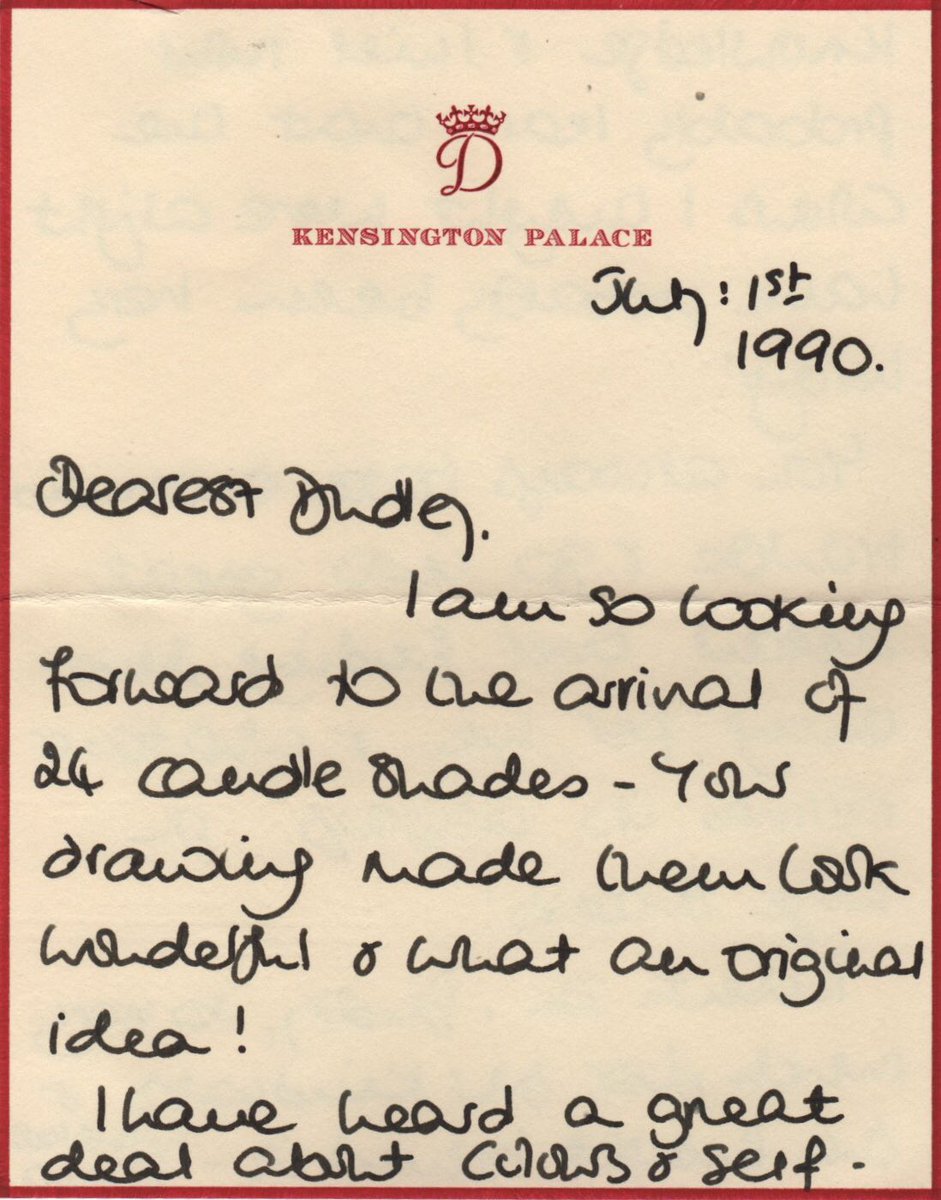 D
KENSINGTON PALACE
July: 1st
1990.
Dearest Dudley.
I am so looking
forward to the arrival of
24 candle shades - Your
drawing made them look
wonderful & what an original
idea!
I have heard a great
deal about Colours & self-